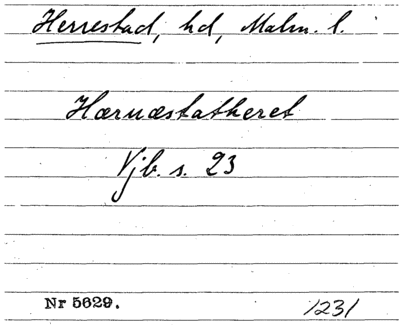 Herrestad, hd, Malm. l.
Hærnæstatheret
Vjb. s. 23
Nr 5629. 1231